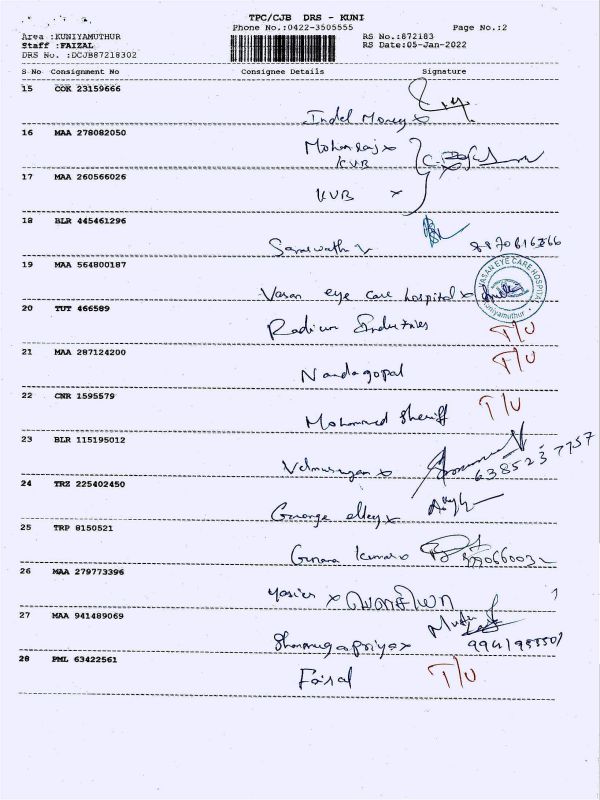 TPC/CJB DRS - KUNI
Phone No.:0422-3505555 Page No.:2
Area :KUNIYAMUTHUR RS No.:872183
Staff :FAIZAL RS Date:05-Jan-2022
DRS No. :DCJB87218302
S No Consignment No Consignee Details Signature
15 COK 23159666
Indel Money x
16 MAA 278082050
Mohanraj x
KVB
17 MAA 260566026
KVB x
18 BLR 445461296
Saraswathi V
19 MAA 564800187
VASAN EYE CARE HOSPITAL
Kuniyamuthur
Vasan eye care hospital x
20 TUT 466589
Radium Industries T/U
21 MAA 287124200
Nandagopal T/U
22 CNR 1595579
Mohammed Sheriff T/U
23 BLR 115195012
Velmurugan x 6385237757
24 TRZ 225402450
George elley x
25 TRP 8150521
Gunana kumar x
26 MAA 279773396
Yasier x
27 MAA 941489069
Shanmugapriya x
28 PML 63422561
Faisal T/U